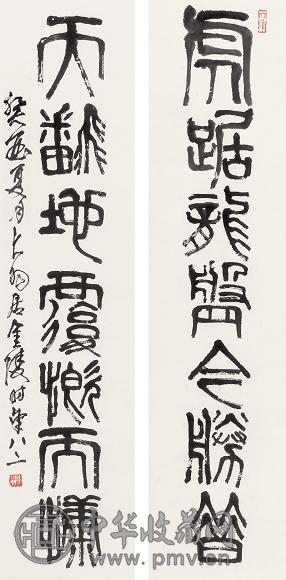 虎踞龍盤今勝昔
天翻地覆慨而慷
癸酉夏月居金陵时年八二
中华收藏网
www.pmv.cn